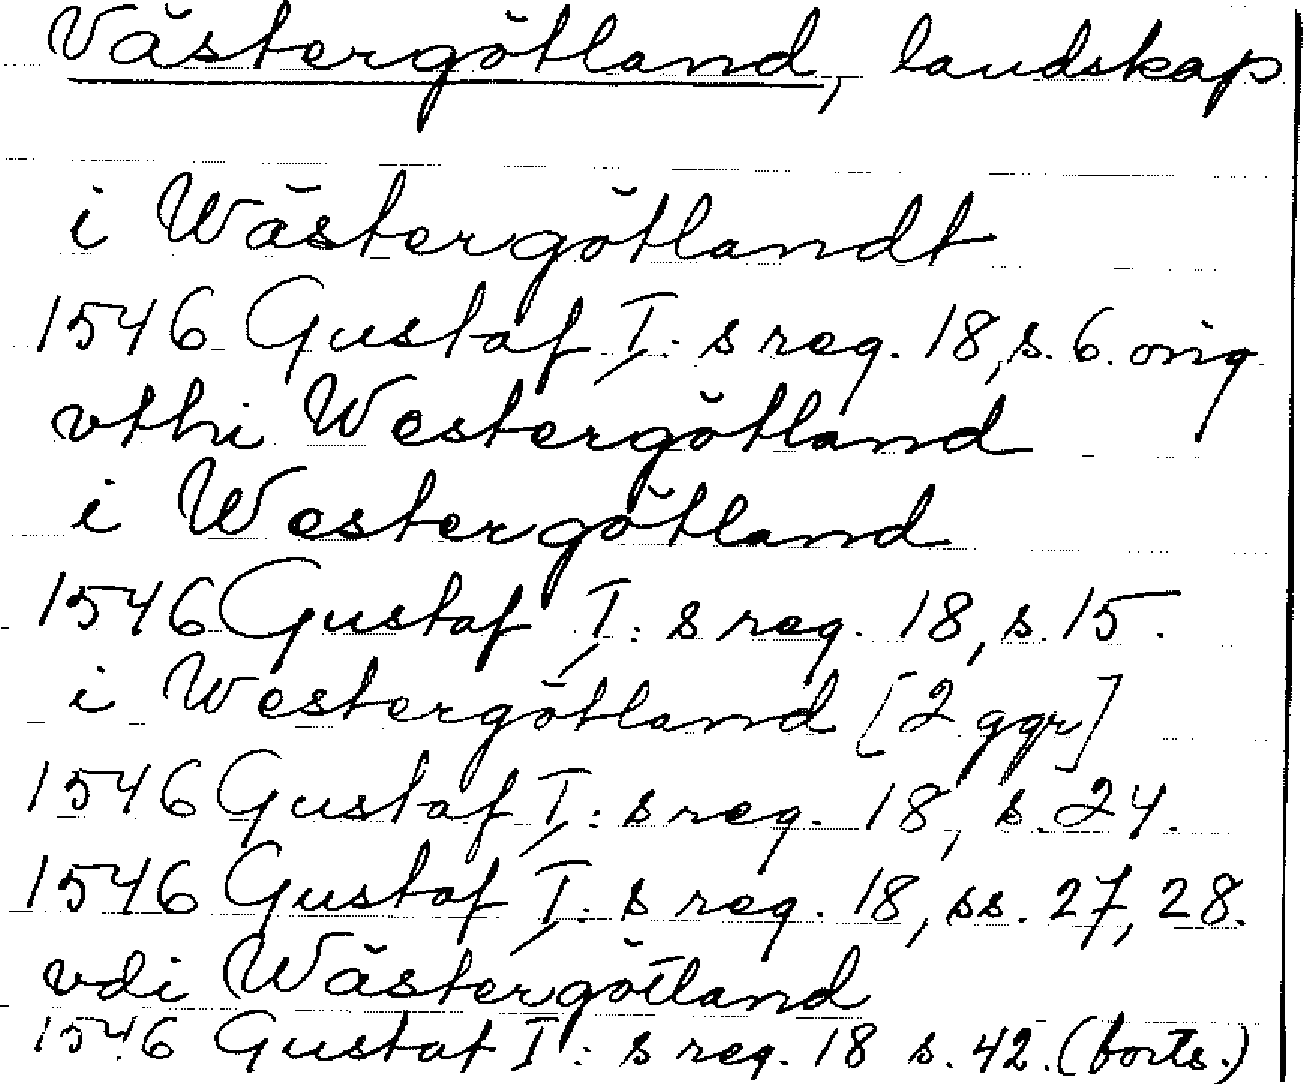 Västergötland, landskap
i Wästergötlandt
1546 Gustaf I: s reg. 18, s. 6. orig
vthi Westergötland
i Westergötland
1546 Gustaf I: s reg. 18, s. 15.
i Westergötland [2 ggr]
1546 Gustaf I: s reg. 18, s. 24.
1546 Gustaf I: s reg. 18, ss. 27, 28.
vdi Wästergötland
1546 Gustaf I: s reg. 18 s. 42. (forts.)